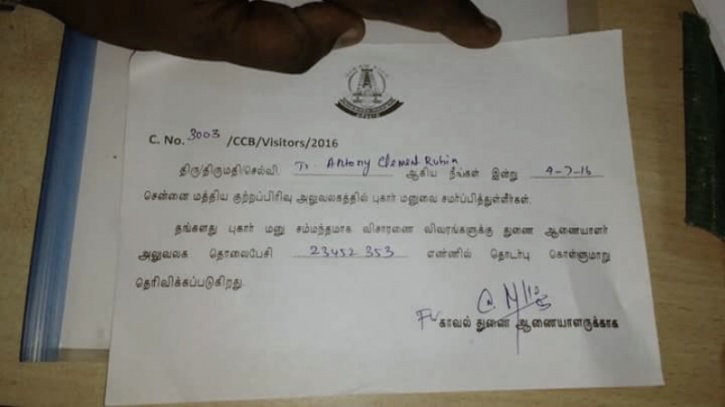 C. No. 3003 /CCB/Visitors/2016
திரு/திருமதி/செல்வி. T. Antony Clement Rubin ஆகிய நீங்கள் இன்று 4-7-16
சென்னை மத்திய குற்றப்பிரிவு அலுவலகத்தில் புகார் மனுவை சமர்ப்பித்துள்ளீர்கள்.
தங்களது புகார் மனு சம்மந்தமாக விசாரணை விவரங்களுக்கு துணை ஆணையாளர்
அலுவலக தொலைபேசி 23452353 எண்ணில் தொடர்பு கொள்ளுமாறு
தெரிவிக்கப்படுகிறது.
காவல் துணை ஆணையாளருக்காக